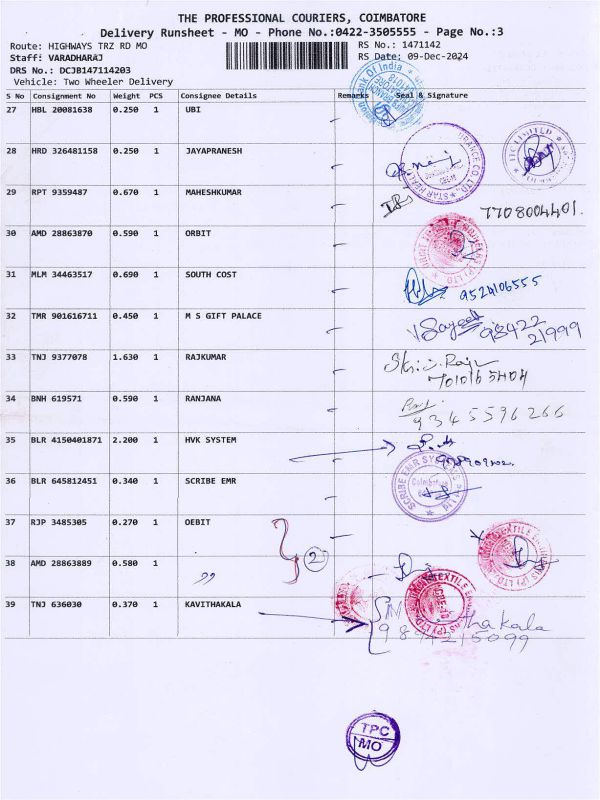 THE PROFESSIONAL COURIERS, COIMBATORE
Delivery Runsheet - MO - Phone No.:0422-3505555 - Page No.:3
Route: HIGHWAYS TRZ RD MO
RS No.: 1471142
Staff: VARADHARAJ
RS Date: 09-Dec-2024
DRS No.: DCJB147114203
Vehicle: Two Wheeler Delivery
S No Consignment No Weight PCS Consignee Details Remarks Seal & Signature
27 HBL 20081638 0.250 1 UBI
28 HRD 326481158 0.250 1 JAYAPRANESH
29 RPT 9359487 0.670 1 MAHESHKUMAR 7708004401.
30 AMD 28863870 0.590 1 ORBIT
31 MLM 34463517 0.690 1 SOUTH COST 9524106555
32 TMR 901616711 0.450 1 M S GIFT PALACE 98422
21999
33 TNJ 9377078 1.630 1 RAJKUMAR
7010165404
34 BNH 619571 0.590 1 RANJANA 9345596266
35 BLR 4150401871 2.200 1 HVK SYSTEM
36 BLR 645812451 0.340 1 SCRIBE EMR SCRIBE EMR SYSTEMS
Coimbatore
37 RJP 3485305 0.270 1 OEBIT
2
38 AMD 28863889 0.580 1 ,,
39 TNJ 636030 0.370 1 KAVITHAKALA
thakala
TPC
MO